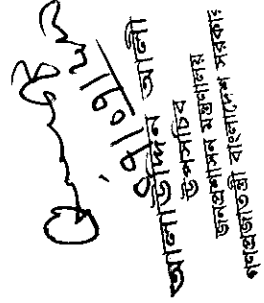 আলাউদ্দিন আলী
উপসচিব
জনপ্রশাসন মন্ত্রণালয়
গণপ্রজাতন্ত্রী বাংলাদেশ সরকার